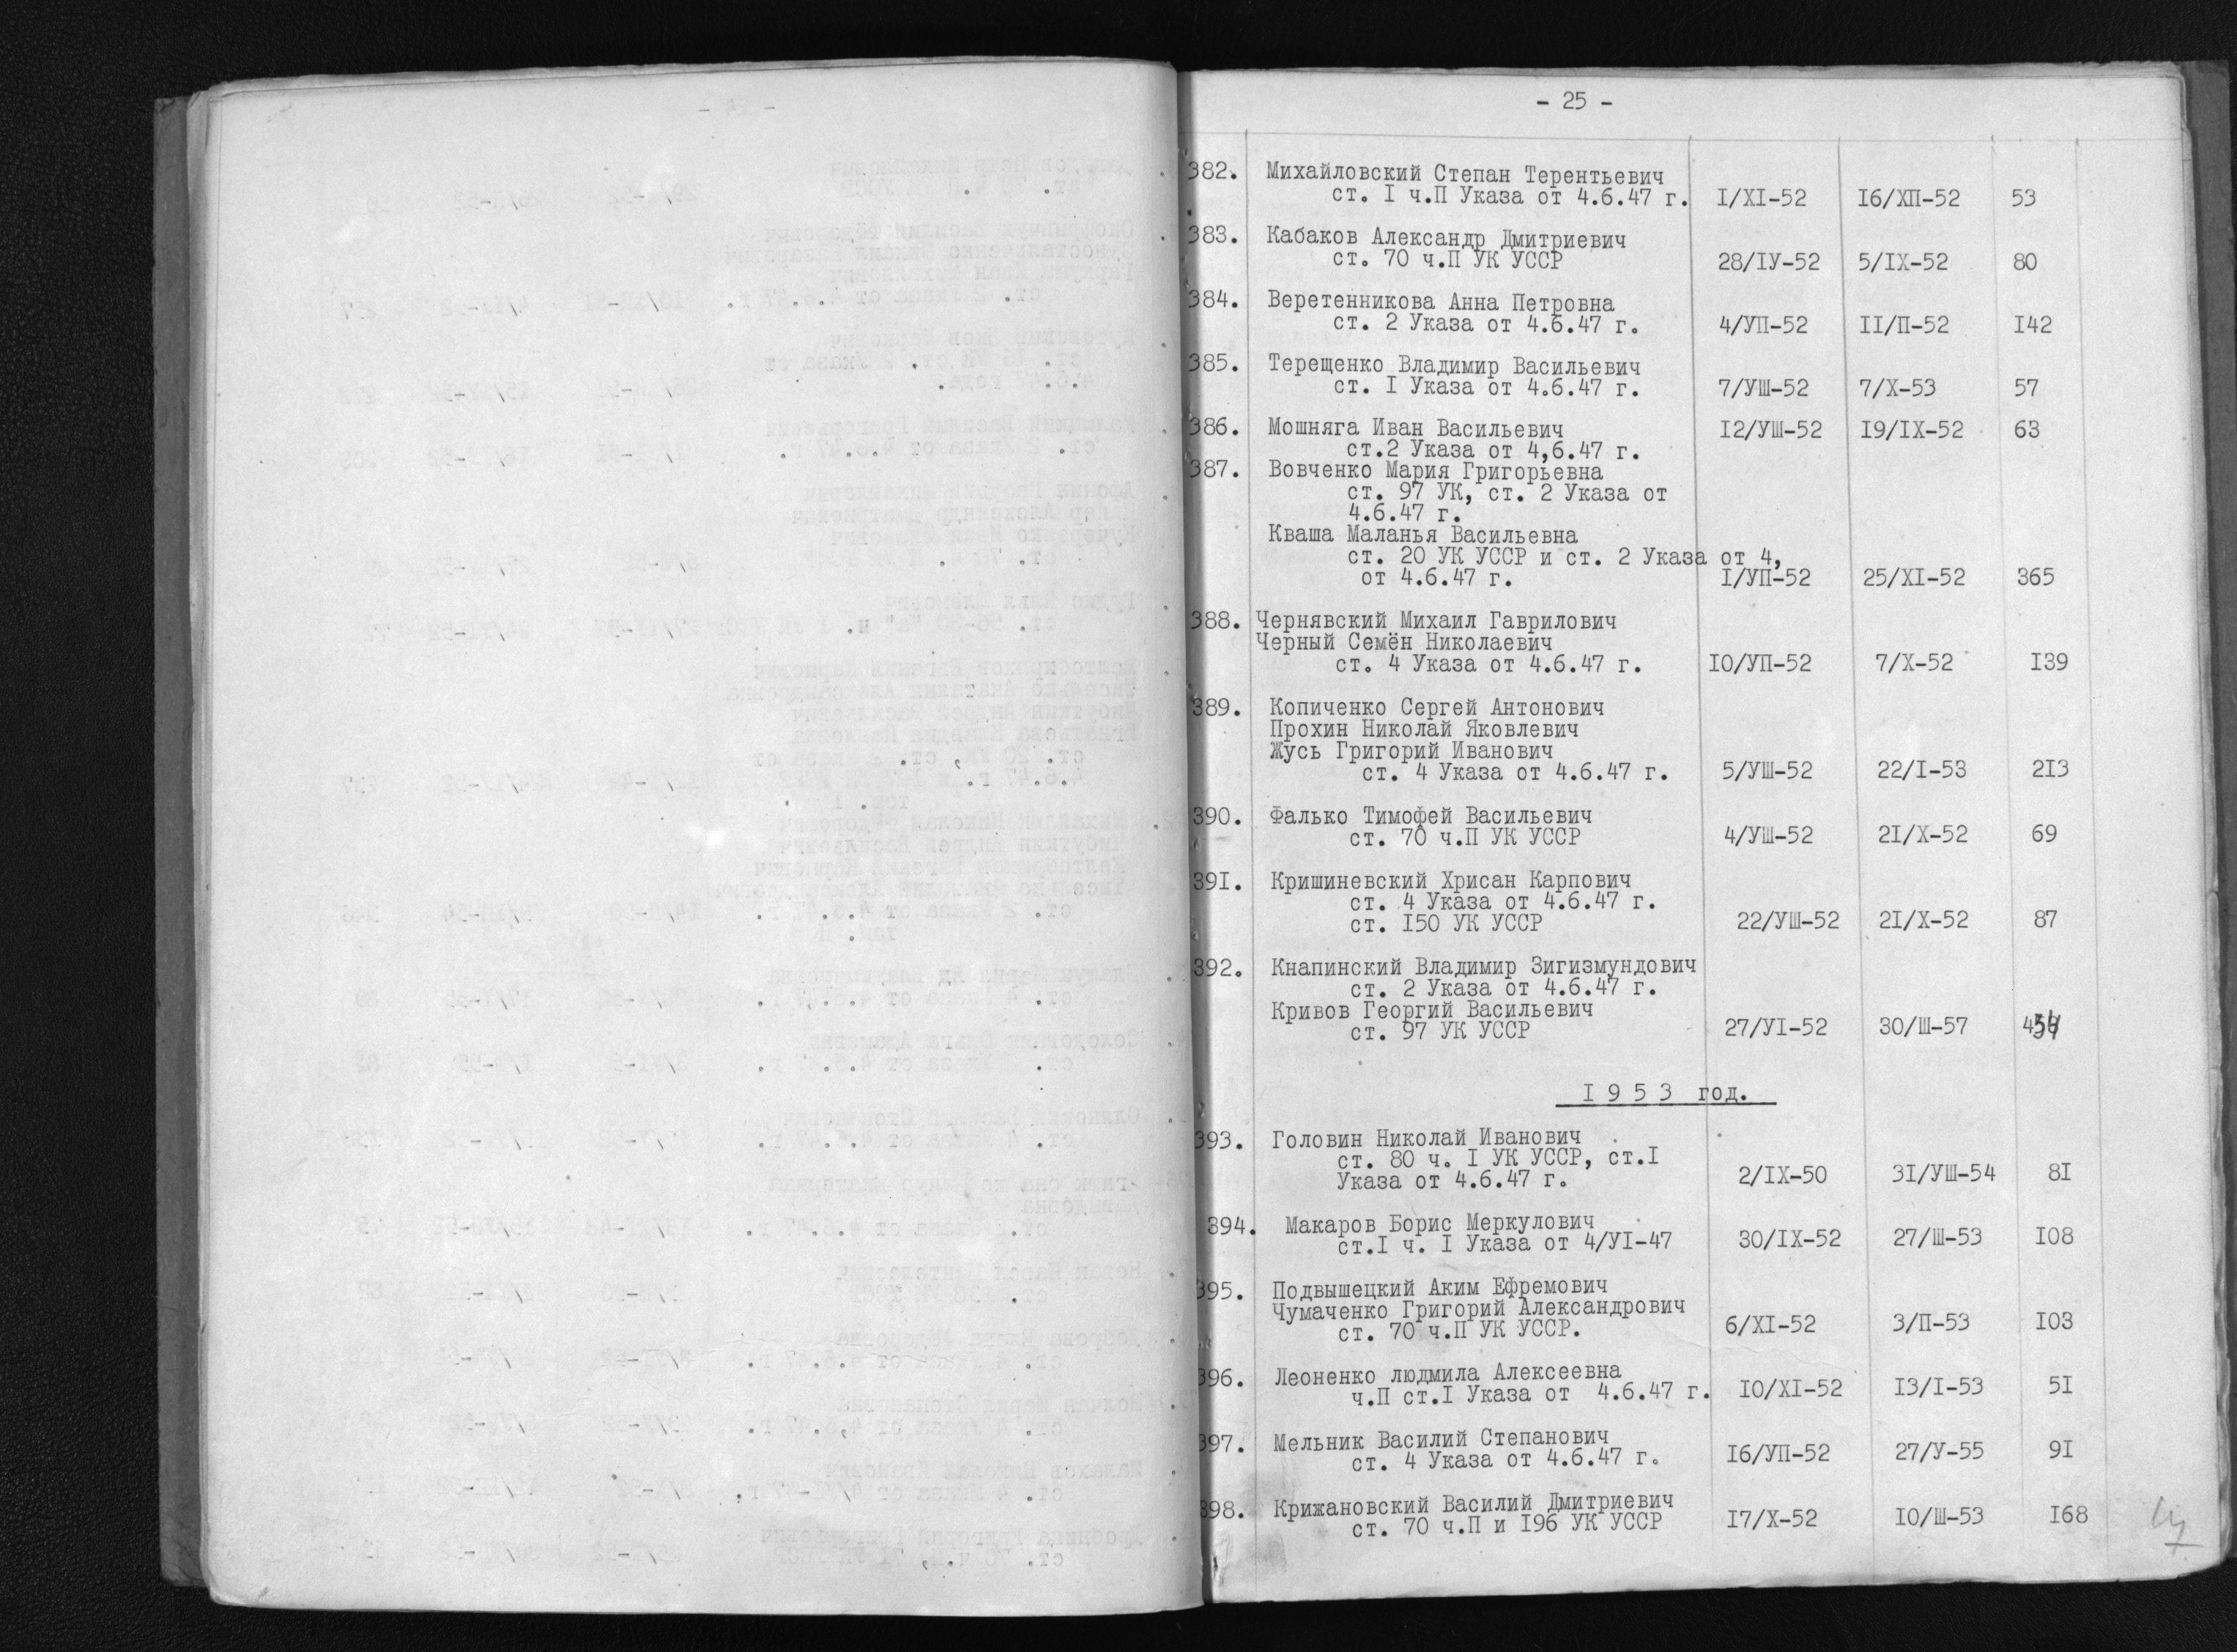 - 25 -
382. Михайловский Степан Терентьевич
ст. I ч.П Указа от 4.6.47 г. I/XI-52 I6/ХП-52 53
383. Кабаков Александр Дмитриевич
ст. 70 ч.П УК УССР 28/IУ-52 5/IХ-52 80
384. Веретенникова Анна Петровна
ст. 2 Указа от 4.6.47 г. 4/УП-52 II/П-52 I42
385. Терещенко Владимир Васильевич
ст. I Указа от 4.6.47 г. 7/УШ-52 7/Х-53 57
386. Мошняга Иван Васильевич I2/УШ-52 I9/IХ-52 63
ст.2 Указа от 4,6.47 г.
387. Вовченко Мария Григорьевна
ст. 97 УК, ст. 2 Указа от
4.6.47 г.
Кваша Маланья Васильевна
ст. 20 УК УССР и ст. 2 Указа от 4,
от 4.6.47 г. I/УП-52 25/ХI-52 365
388. Чернявский Михаил Гаврилович
Черный Семён Николаевич
ст. 4 Указа от 4.6.47 г. I0/УП-52 7/Х-52 I39
389. Копиченко Сергей Антонович
Прохин Николай Яковлевич
Жусь Григорий Иванович
ст. 4 Указа от 4.6.47 г. 5/УШ-52 22/I-53 2I3
390. Фалько Тимофей Васильевич
ст. 70 ч.П УК УССР 4/УШ-52 2I/Х-52 69
39I. Кришиневский Хрисан Карпович
ст. 4 Указа от 4.6.47 г.
ст. I50 УК УССР 22/УШ-52 2I/Х-52 87
392. Кнапинский Владимир Зигизмундович
ст. 2 Указа от 4.6.47 г.
Кривов Георгий Васильевич
ст. 97 УК УССР 27/УI-52 30/Ш-57
I 9 5 3 год.
393. Головин Николай Иванович
ст. 80 ч. I УК УССР, ст.I
Указа от 4.6.47 г. 2/IХ-50 3I/УШ-54 8I
394. Макаров Борис Меркулович
ст.I ч. I Указа от 4/УI-47 30/IХ-52 27/Ш-53 I08
395. Подвышецкий Аким Ефремович
Чумаченко Григорий Александрович
ст. 70 ч.П УК УССР. 6/ХI-52 3/П-53 I03
396. Леоненко людмила Алексеевна
ч.П ст.I Указа от 4.6.47 г. I0/ХI-52 I3/I-53 5I
397. Мельник Василий Степанович
ст. 4 Указа от 4.6.47 г. I6/УП-52 27/У-55 9I
398. Крижановский Василий Дмитриевич
ст. 70 ч.П и I96 УК УССР I7/Х-52 I0/Ш-53 I68